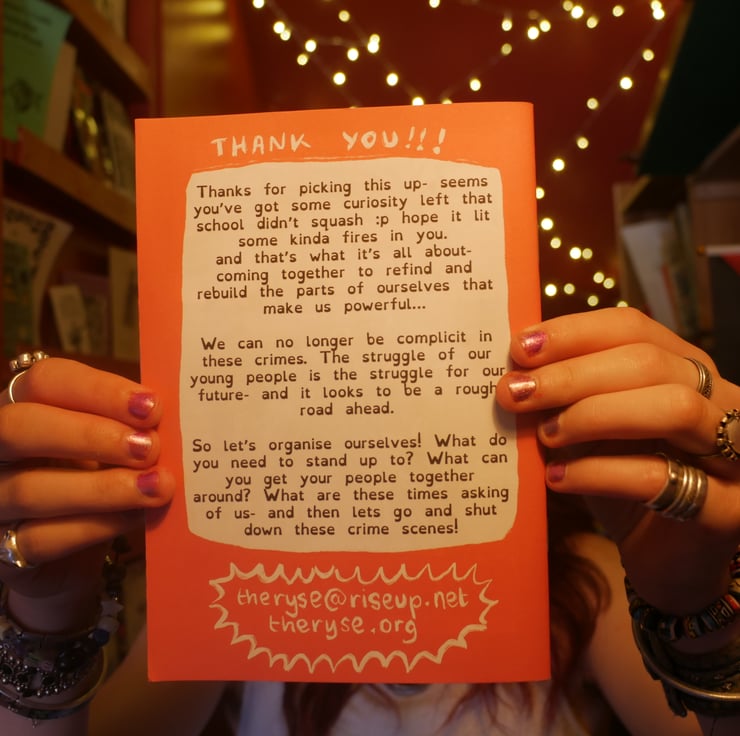 THANK YOU!!!
Thanks for picking this up- seems
you've got some curiosity left that
school didn't squash :p hope it lit
some kinda fires in you.
and that's what it's all about-
coming together to refind and
rebuild the parts of ourselves that
make us powerful...
We can no longer be complicit in
these crimes. The struggle of our
young people is the struggle for our
future- and it looks to be a rough
road ahead.
So let's organise ourselves! What do
you need to stand up to? What can
you get your people together
around? What are these times asking
of us- and then lets go and shut
down these crime scenes!
theryse@riseup.net
theryse.org